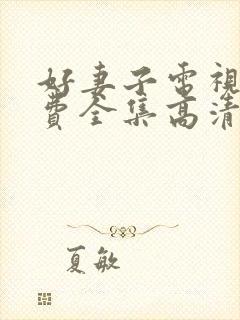 好妻子電視
費全集高清
夏敏